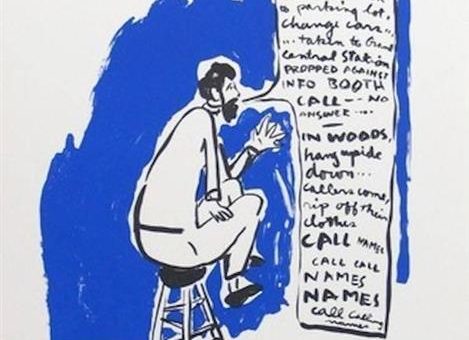 to parking lot,
change cars..
... taken to Grand
central Station
PROPPED AGAINST
INFO BOOTH
CALL -- NO
ANSWER ....
IN WOODS,
hang upside
down...
callers come,
rip off their
clothes
CALL NAMES
CALL CALL
NAMES
NAMES
call calling
names